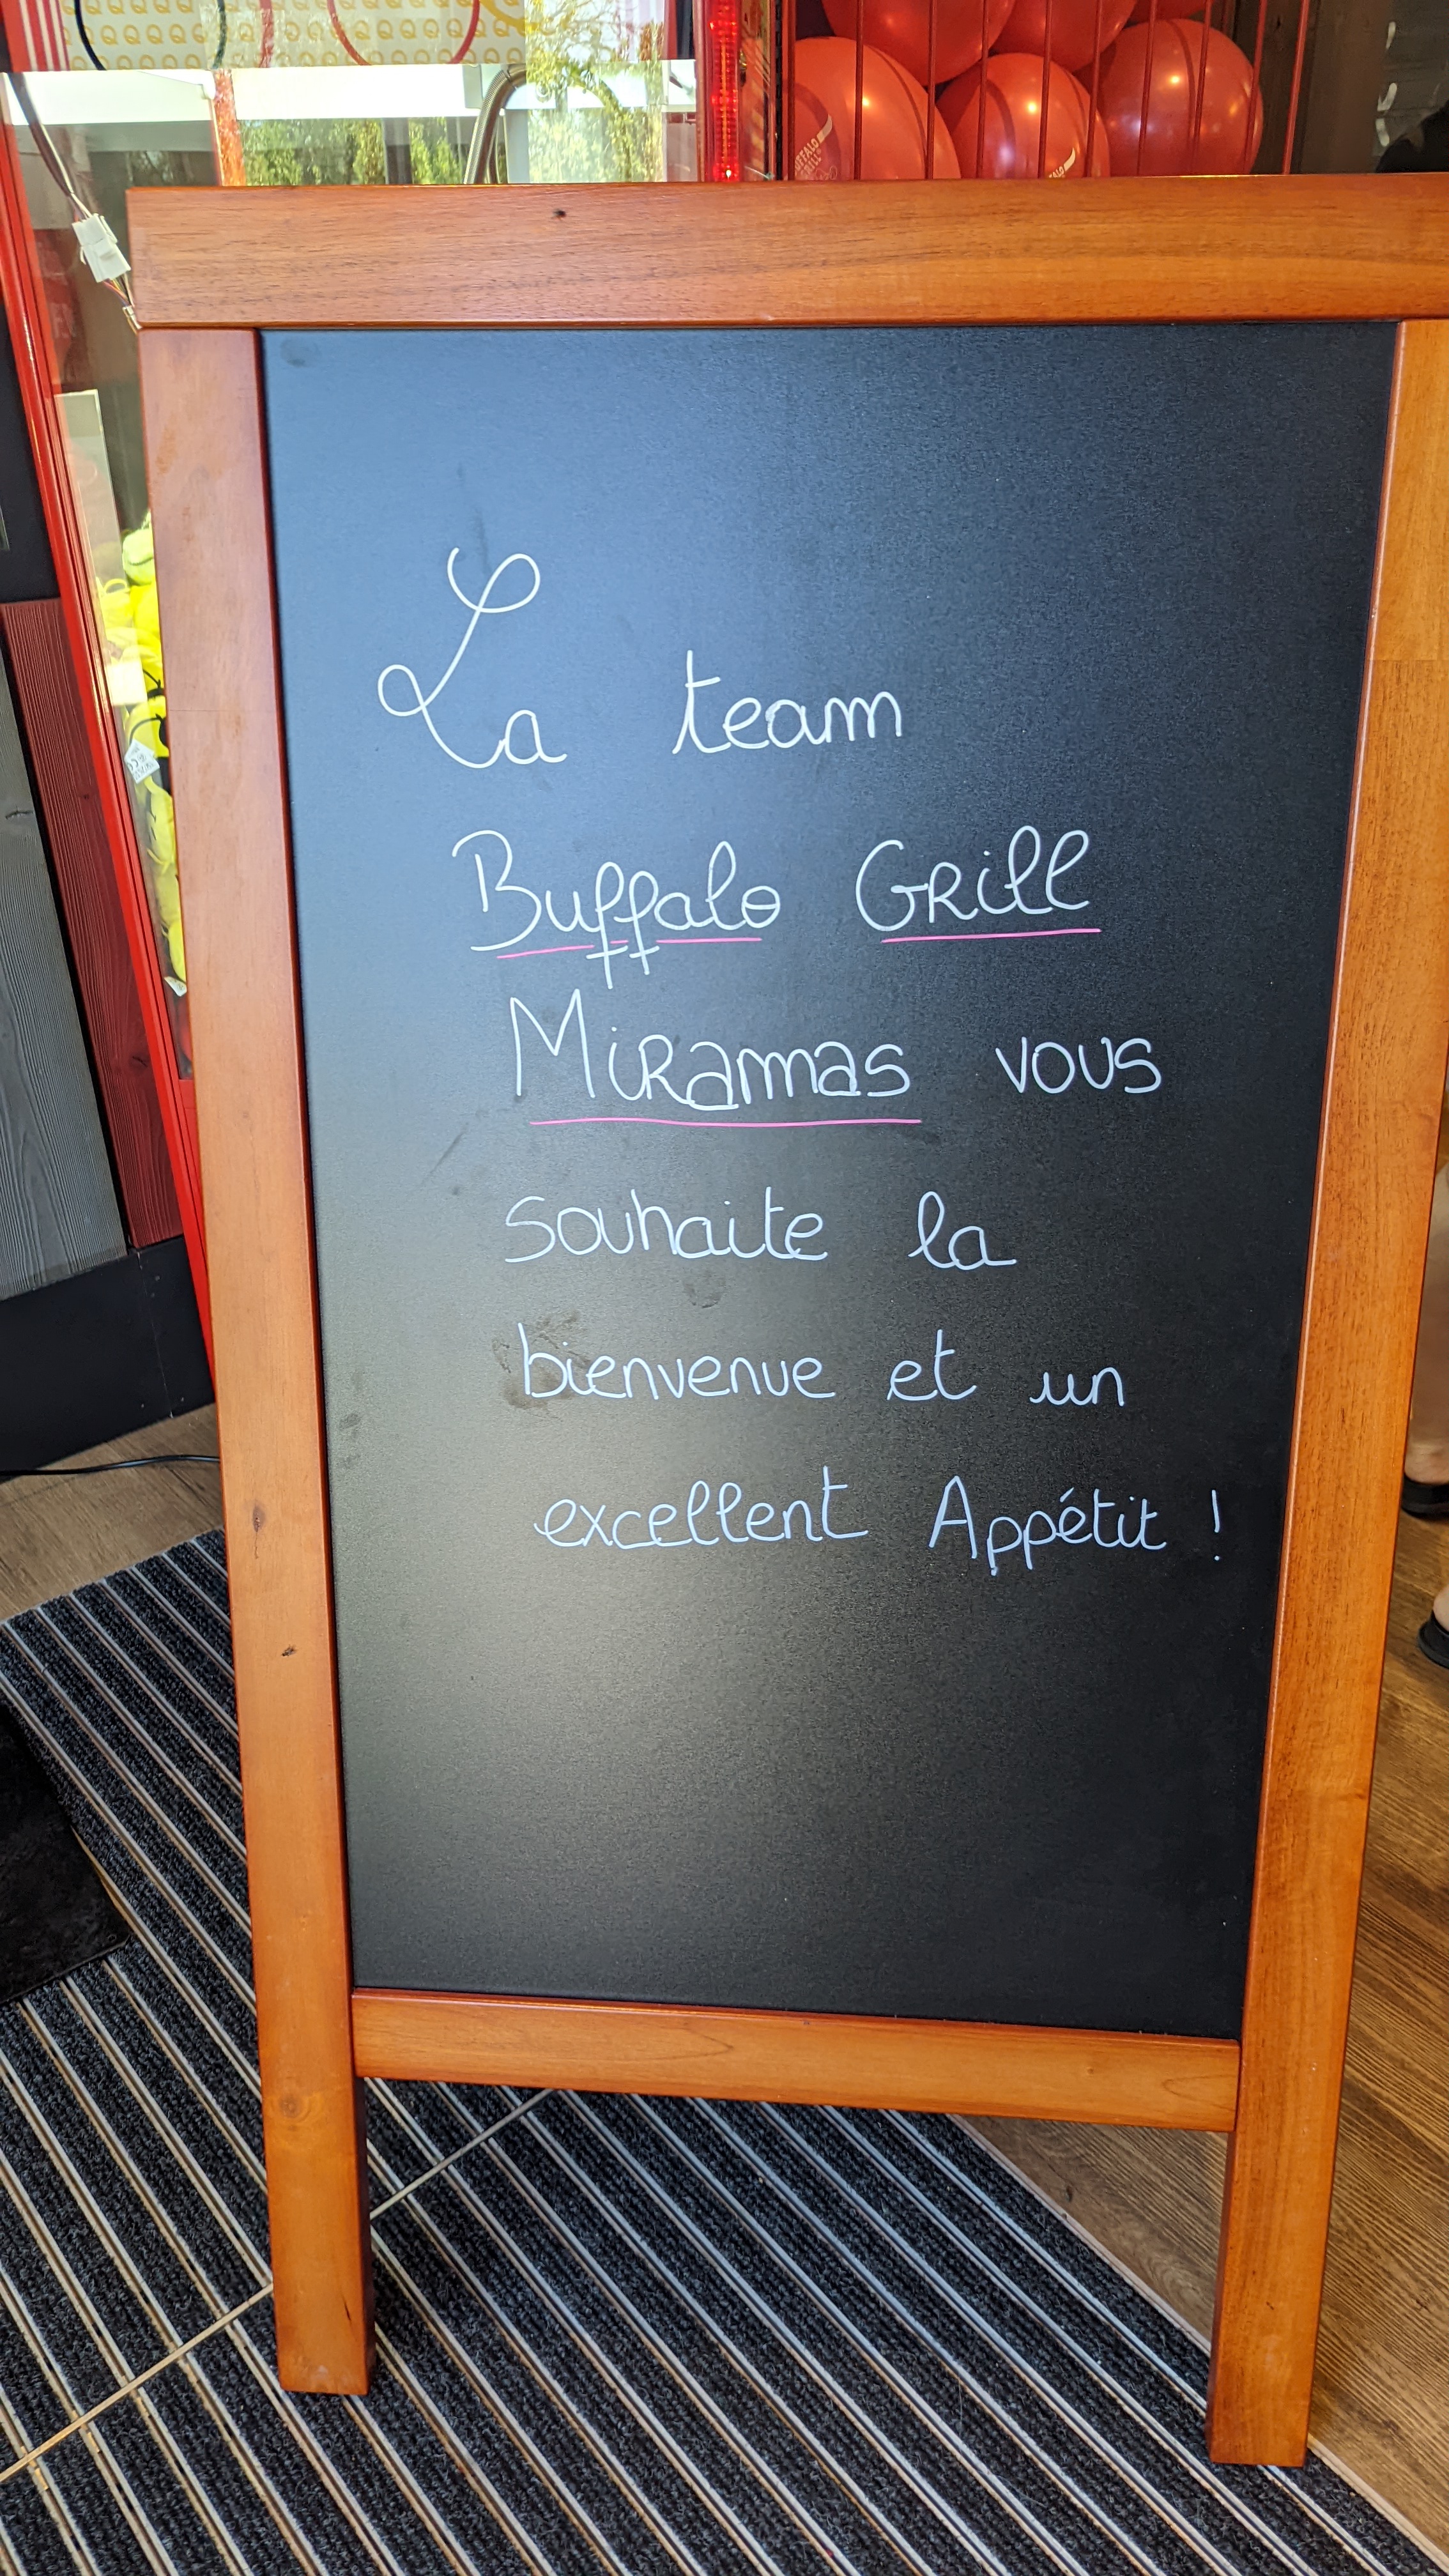 La team
Buffalo Grill
Miramas vous
souhaite la
bienvenue et un
excellent Appétit !